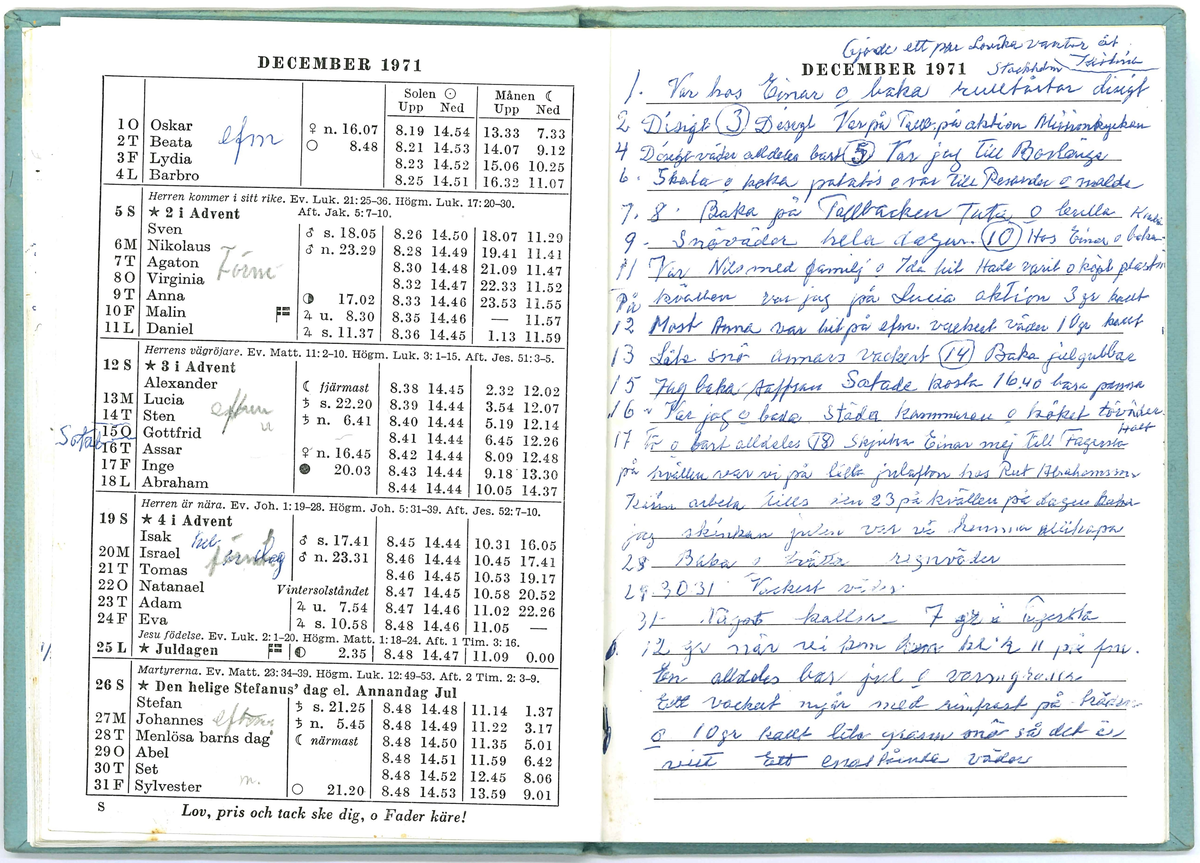 DECEMBER 1971
Solen ☉ Månen ☾
Upp Ned Upp Ned
1 O Oskar ♀ n. 16.07 8.19 14.54 13.33 7.33
2 T Beata efm ○ 8.48 8.21 14.53 14.07 9.12
3 F Lydia 8.23 14.52 15.06 10.25
4 L Barbro 8.25 14.51 16.32 11.07
Herren kommer i sitt rike. Ev. Luk. 21: 25-36. Högm. Luk. 17: 20-30.
5 S ★ 2 i Advent Aft. Jak. 5: 7-10.
Sven ♂ s. 18.05 8.26 14.50 18.07 11.29
6 M Nikolaus ♂ n. 23.29 8.28 14.49 19.41 11.41
7 T Agaton 8.30 14.48 21.09 11.47
8 O Virginia 8.32 14.47 22.33 11.52
9 T Anna ◑ 17.02 8.33 14.46 23.53 11.55
10 F Malin ♃ u. 8.30 8.35 14.46 — 11.57
11 L Daniel ♃ s. 11.37 8.36 14.45 1.13 11.59
Herrens vägröjare. Ev. Matt. 11: 2-10. Högm. Luk. 3: 1-15. Aft. Jes. 51: 3-5.
12 S ★ 3 i Advent
Alexander ☾ fjärmast 8.38 14.45 2.32 12.02
13 M Lucia ♄ s. 22.20 8.39 14.44 3.54 12.07
14 T Sten ♄ n. 6.41 8.40 14.44 5.19 12.14
15 O Gottfrid 8.41 14.44 6.45 12.26
16 T Assar ♀ n. 16.45 8.42 14.44 8.09 12.48
17 F Inge ● 20.03 8.43 14.44 9.18 13.30
18 L Abraham 8.44 14.44 10.05 14.37
Herren är nära. Ev. Joh. 1: 19-28. Högm. Joh. 5: 31-39. Aft. Jes. 52: 7-10.
19 S ★ 4 i Advent
Isak ♂ s. 17.41 8.45 14.44 10.31 16.05
20 M Israel ♂ n. 23.31 8.46 14.44 10.45 17.41
21 T Tomas 8.46 14.45 10.53 19.17
22 O Natanael Vintersolståndet 8.47 14.45 10.58 20.52
23 T Adam ♃ u. 7.54 8.47 14.46 11.02 22.26
24 F Eva ♃ s. 10.58 8.48 14.46 11.05 —
Jesu födelse. Ev. Luk. 2: 1-20. Högm. Matt. 1: 18-24. Aft. 1 Tim. 3: 16.
25 L ★ Juldagen ◐ 2.35 8.48 14.47 11.09 0.00
Martyrerna. Ev. Matt. 23: 34-39. Högm. Luk. 12: 49-53. Aft. 2 Tim. 2: 3-9.
26 S ★ Den helige Stefanus' dag el. Annandag Jul
Stefan ♄ s. 21.25 8.48 14.48 11.14 1.37
27 M Johannes ♄ n. 5.45 8.48 14.49 11.22 3.17
28 T Menlösa barns dag ☾ närmast 8.48 14.50 11.35 5.01
29 O Abel 8.48 14.51 11.59 6.42
30 T Set 8.48 14.52 12.45 8.06
31 F Sylvester m. ○ 21.20 8.48 14.53 13.59 9.01
S Lov, pris och tack ske dig, o Fader käre!
Gjorde ett par Lovika vantar åt
DECEMBER 1971 Stockholm
1. Var hos Einar o baka rulltårtor disigt
2 Disigt (3) Disigt Var på Tall. på aktion Missionkyrkan
4 Disigt väder alldeles bart (5) Var jag till Borlänge
6. Skala o koka potatis o var till o malde
7. 8. Baka på Tallbacken Tuta o bulla
9 - Snöväder hela dagen. (10) Hos Einar o baka
11 Var Nils med familj o Ida hit Hade varit o köpt
På kvällen var jag på Lucia aktion 3 gr kallt
12 Most Anna var hit på efm. vackert väder 10 gr kallt
13 Lite snö annars vackert (14) Baka julgubbar
15 Jag baka saffran Sotade kosta 16.40 bara panna
16 - Var jag o bara städa kammaren o köket
17 o bart alldeles (18) Skjutsa Einar mej till Fagersta
på kvällen var vi på lilla julafton hos Rut Abrahamsson
arbeta tills den 23 på kvällen på dagen baka
jag skinkan julen var vi hemma
28 Baka o tvätta regnväder
29 30 31 Vackert väder
31 - Något kallare 7 gr i Fagersta
12 gr när vi kom hem kl 11 på fm.
En alldeles bar jul o
Ett vackert nyår med rimfrost på träden
o 10 gr kallt lite grann snö så det är
vitt Ett enastående väder